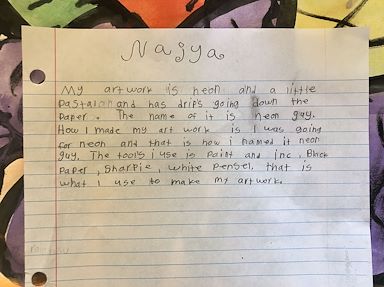 Najya
My artwork is neon and a little
pastal and has drips going down the
paper. The name of it is neon guy.
How I made my art work is I was going
for neon and that is how i named it neon
guy. The tool's i use is paint and inc, Black
paper, sharpie, white pensel, that is
what I use to make my artwork.